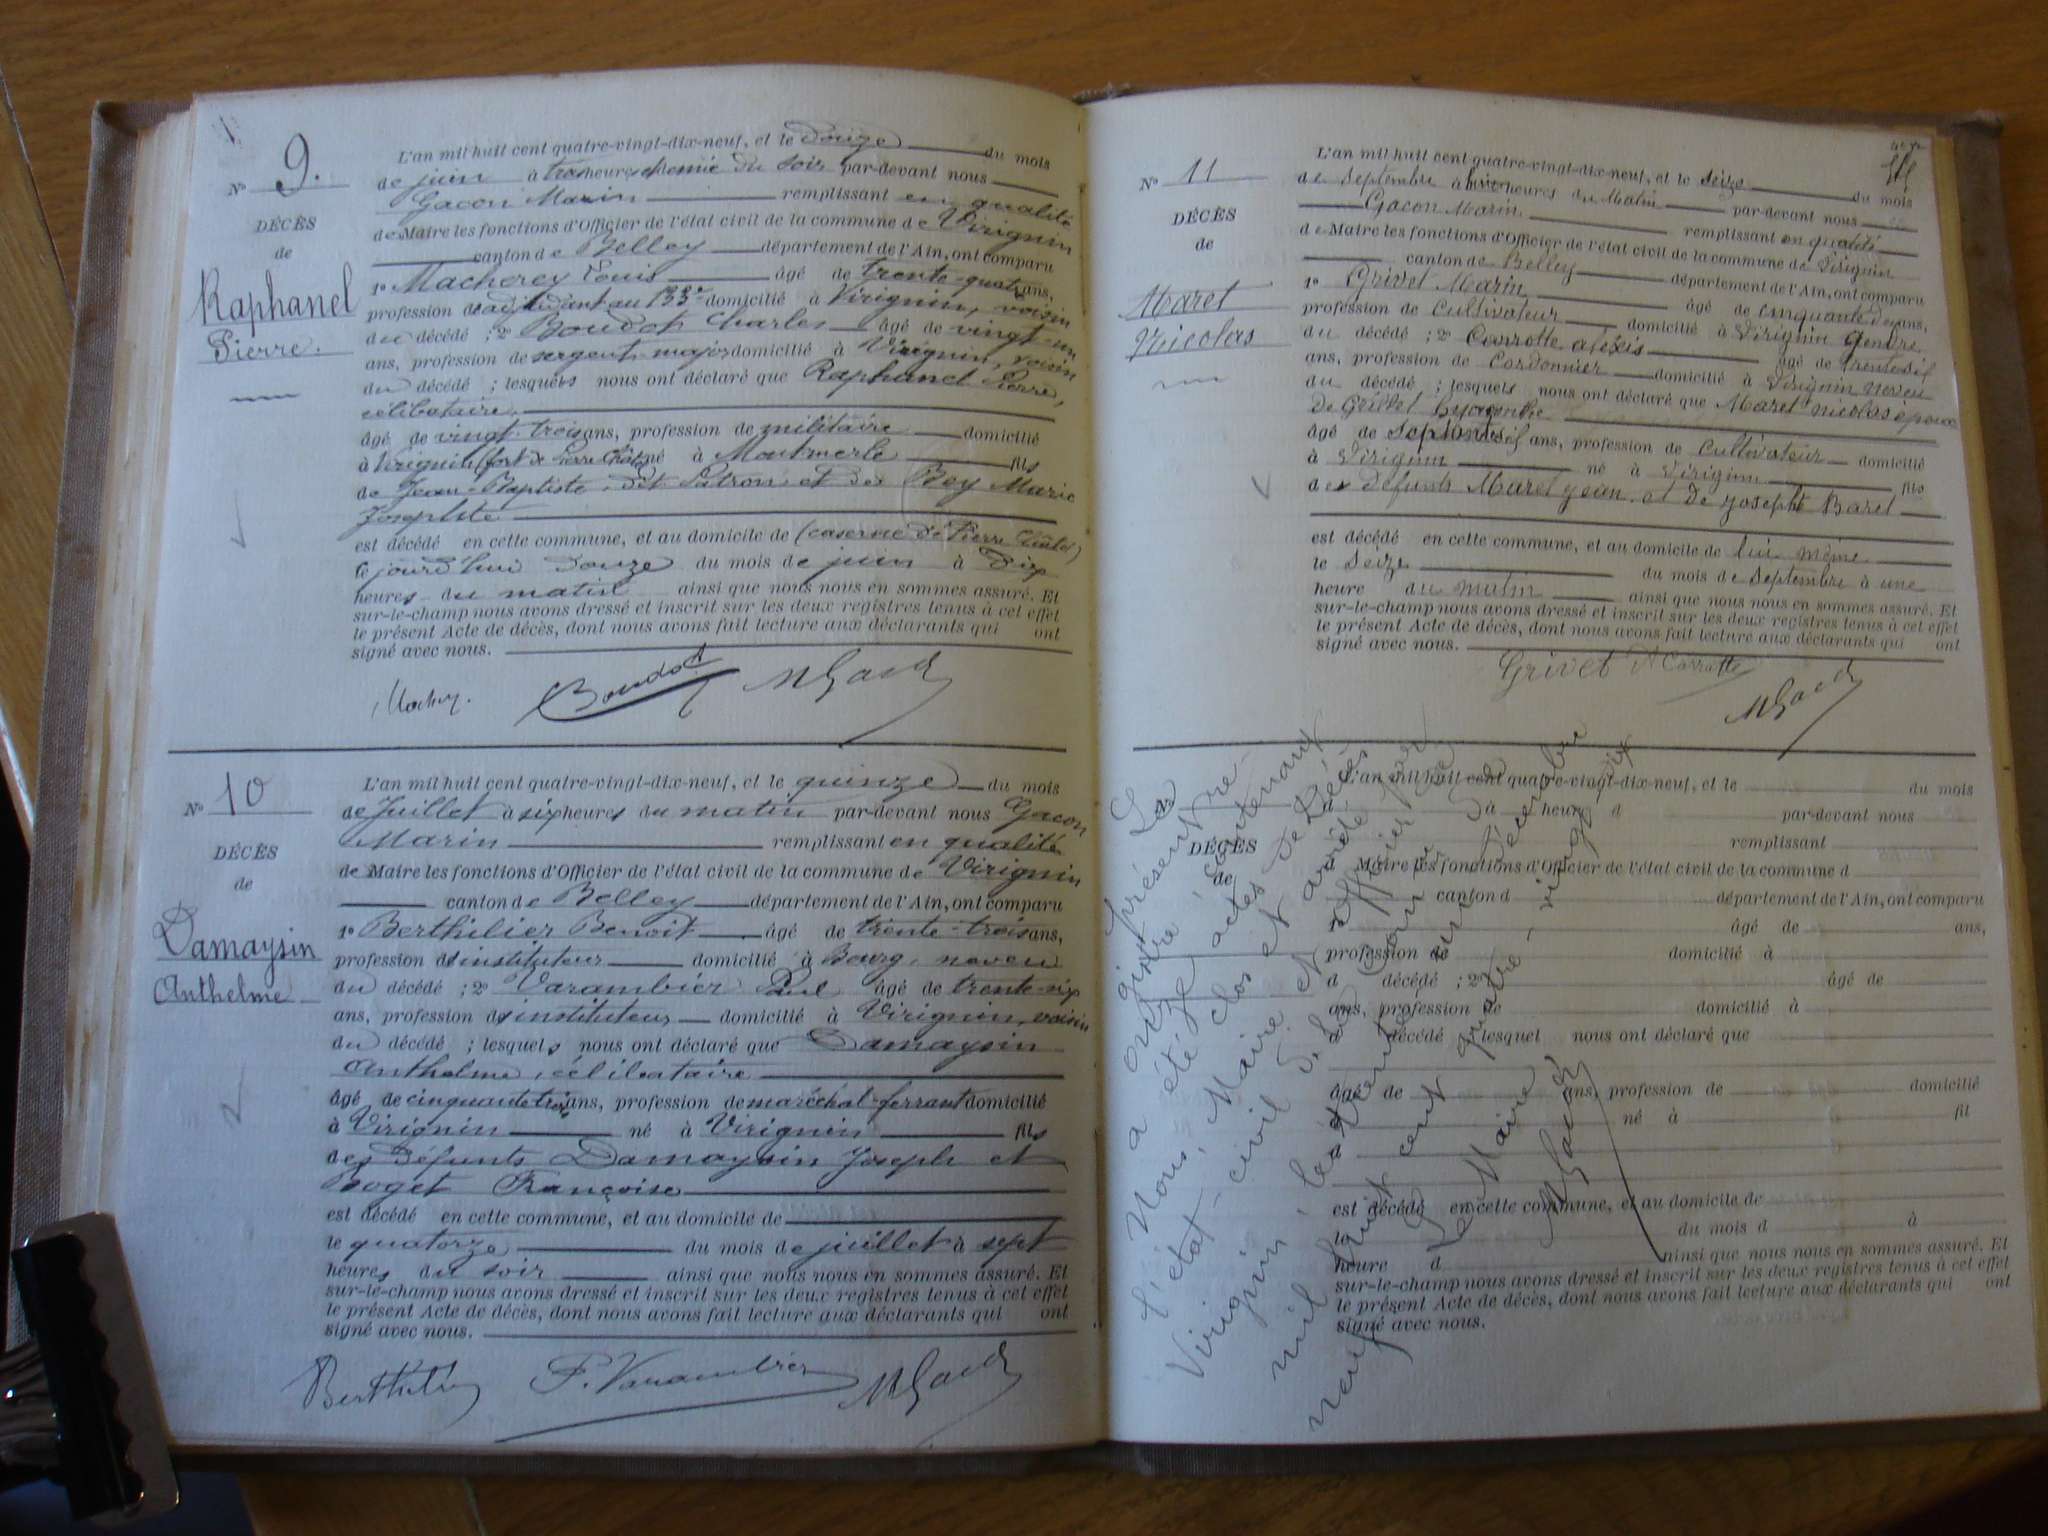 N° 9.
DÉCÈS
de
Raphanel
Pierre.
L'an mil huit cent quatre-vingt-dix-neuf, et le douze du mois
de juin à trois heures demie du soir par-devant nous
Gacon Marin remplissant en qualité
de Maire les fonctions d'Officier de l'état civil de la commune de Virignin
canton de Belley département de l'Ain, ont comparu
1° Macherey Louis âgé de trente-quatre ans,
profession de adjudant au 133e domicilié à Virignin, voisin
du décédé ; 2° Boudot Charles âgé de vingt-un
ans, profession de sergent major domicilié à Virignin, voisin
du décédé ; lesquels nous ont déclaré que Raphanel Pierre,
célibataire.
âgé de vingt trois ans, profession de militaire domicilié
à Virignin (fort de Pierre Châtel) né à Montmerle fils
de Jean-Baptiste, dit Patron et de Bey Marie
Josephte
est décédé en cette commune, et au domicile de (caserne de Pierre Châtel)
le jourd'hui douze du mois de juin à dix
heures du matin ainsi que nous nous en sommes assuré. Et
sur-le-champ nous avons dressé et inscrit sur les deux registres tenus à cet effet
le présent Acte de décès, dont nous avons fait lecture aux déclarants qui ont
signé avec nous.
Boudot MGacon
N° 10
DÉCÈS
de
Damaysin
Anthelme
L'an mil huit cent quatre-vingt-dix-neuf, et le quinze du mois
de Juillet à six heures du matin par-devant nous Gacon
Marin remplissant en qualité
de Maire les fonctions d'Officier de l'état civil de la commune de Virignin
canton de Belley département de l'Ain, ont comparu
1° Berthilier Benoit âgé de trente-trois ans,
profession d'instituteur domicilié à Bourg, neveu
du décédé ; 2° Varambier Paul âgé de trente-six
ans, profession d'instituteur domicilié à Virignin, voisin
du décédé ; lesquels nous ont déclaré que Damaysin
Anthelme, célibataire
âgé de cinquante trois ans, profession de maréchal-ferrant domicilié
à Virignin né à Virignin fils
des défunts Damaysin Joseph et
Françoise
est décédé en cette commune, et au domicile de
le quatorze du mois de juillet à sept
heures du soir ainsi que nous nous en sommes assuré. Et
sur-le-champ nous avons dressé et inscrit sur les deux registres tenus à cet effet
le présent Acte de décès, dont nous avons fait lecture aux déclarants qui ont
signé avec nous.
P. Varambier MGacon
N° 11
DÉCÈS
de
Maret
Nicolas
L'an mil huit cent quatre-vingt-dix-neuf, et le seize du mois
de Septembre à huit heures du Matin par-devant nous
Gacon Marin remplissant en qualité
de Maire les fonctions d'Officier de l'état civil de la commune de Virignin
canton de Belley département de l'Ain, ont comparu
1° Grivet Marin âgé de cinquante deux ans,
profession de Cultivateur domicilié à Virignin Gendre
du décédé ; 2° Carrotte aléxis âgé de trentesix
ans, profession de Cordonnier domicilié à Virignin neveu
du décédé ; lesquels nous ont déclaré que Maret nicolas époux
de Grillet
âgé de ans, profession de Cultivateur domicilié
à Virignin né à Virignin fils
des défunts Maret jean et de josephte Baret
est décédé en cette commune, et au domicile de lui même
le Seize du mois de Septembre à une
heure du matin ainsi que nous nous en sommes assuré. Et
sur-le-champ nous avons dressé et inscrit sur les deux registres tenus à cet effet
le présent Acte de décès, dont nous avons fait lecture aux déclarants qui ont
signé avec nous.
Grivet A Carrotte
MGacon
DÉCÈS
de
L'an mil huit cent quatre-vingt-dix-neuf, et le du mois
d à heure d par-devant nous
remplissant
Maire les fonctions d'Officier de l'état civil de la commune d
canton d département de l'Ain, ont comparu
1° âgé de ans,
profession de domicilié à
d décédé ; 2° âgé de
ans, profession de domicilié à
d décédé ; lesquel nous ont déclaré que
âgé de ans, profession de domicilié
à né à fil
est décédé en cette commune, et au domicile de
le du mois d à
heure d ainsi que nous nous en sommes assuré. Et
sur-le-champ nous avons dressé et inscrit sur les deux registres tenus à cet effet
le présent Acte de décès, dont nous avons fait lecture aux déclarants qui ont
signé avec nous.
Le présent re-
gistre contenant
onze actes de Décès
a été clos et arrêté par
Nous, Maire et officier de
l'état-civil de la Commune de
Virignin, le trente un décembre
mil huit cent quatre-vingt-dix
neuf
Le Maire
MGacon